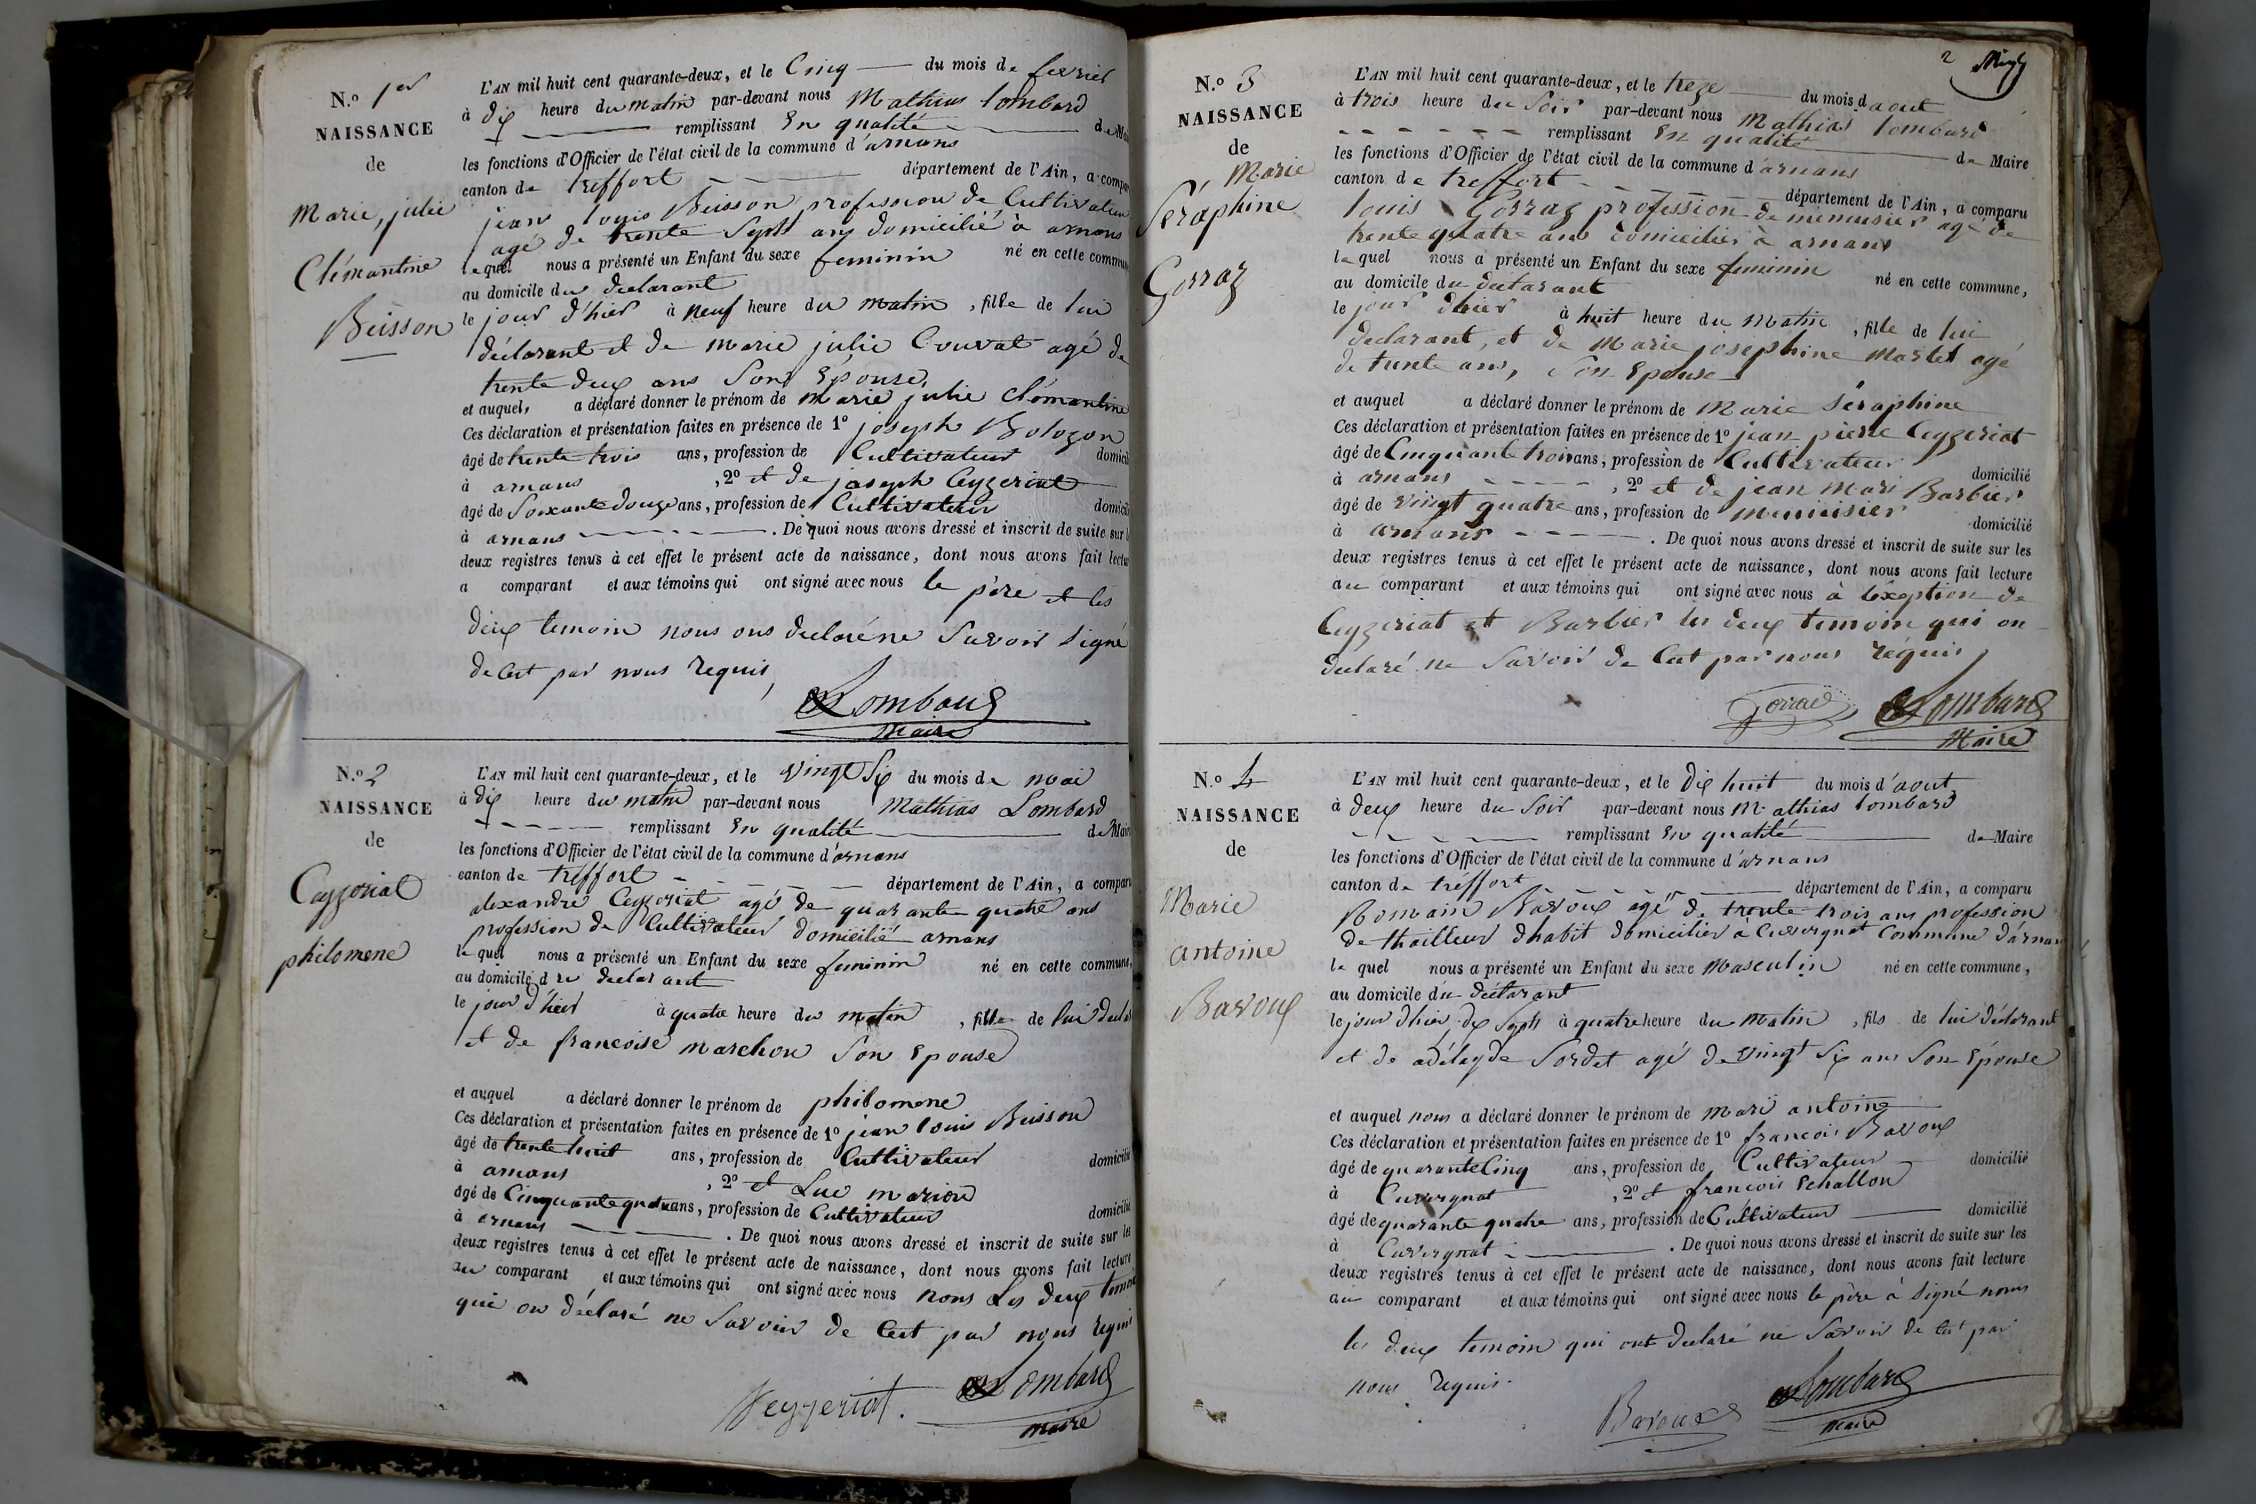 N.º 1er
NAISSANCE
de
Marie, julie
Clémantine
Buisson
L'AN mil huit cent quarante-deux, et le Cinq du mois de fevrier
à dix heure du matin par-devant nous Mathias lombard
remplissant En qualité de Mai
les fonctions d'Officier de l'état civil de la commune d'arnans
canton de treffort département de l'Ain, a compar
jean louis Buisson profession de Cultivateur
agé de trente Sept ans domicilié à arnans
lequel nous a présenté un Enfant du sexe feminin né en cette commune
au domicile du declarant
le jour d'hier à neuf heure du matin, fille de lui
déclarant et de marie julie Couvat agé de
trente deux ans Son Epouse,
et auquel, a déclaré donner le prénom de marie julie Clémantine
Ces déclaration et présentation faites en présence de 1º joseph Bologon
âgé de trente trois ans, profession de Cultivateur domicili
à arnans, 2º et de joseph Ceyzeriat
âgé de Soixante douze ans, profession de Cultivateur domicili
à arnans. De quoi nous avons dressé et inscrit de suite sur l
deux registres tenus à cet effet le présent acte de naissance, dont nous avons fait lectu
a comparant et aux témoins qui ont signé avec nous le père et les
deux temoin nous ons declaré ne Savoir Signé
de Cest par nous requis,
Lombard
Maire
N.º 2
NAISSANCE
de
Ceyzeriat
philomene
L'AN mil huit cent quarante-deux, et le vingt Six du mois de mai
à dix heure du matin par-devant nous Mathias Lombard
remplissant En qualité de Maire
les fonctions d'Officier de l'état civil de la commune d'arnans
canton de tréffort département de l'Ain, a comparu
alexandre Ceyzeriat agé de quarante quatre ans
profession de Cultivateur domicilié arnans
le quel nous a présenté un Enfant du sexe feminin né en cette commune,
au domicile du declarant
le jour d'hier à quatre heure du matin, fille de lui decla
et de francoise marchon Son Epouse
et auquel a déclaré donner le prénom de philomene
Ces déclaration et présentation faites en présence de 1º jean louis Buisson
âgé de trente huit ans, profession de Cultivateur domicilié
à arnans, 2º et Luc marion
âgé de Cinquante quatre ans, profession de Cultivateur domicilié
à arnans. De quoi nous avons dressé et inscrit de suite sur les
deux registres tenus à cet effet le présent acte de naissance, dont nous avons fait lecture
au comparant et aux témoins qui ont signé avec nous nons Les deux temoin
qui on déclaré ne Savoir de Cest par nous requis
Ceyzeriat. Lombard
maire
2
N.º 3
NAISSANCE
de
Marie
Séraphine
Gorraz
L'AN mil huit cent quarante-deux, et le treze du mois d aout
à trois heure du Soir par-devant nous Mathias lombard
remplissant En qualité de Maire
les fonctions d'Officier de l'état civil de la commune d'arnans
canton de treffort département de l'Ain, a comparu
louis Gorraz profession de menuisier agé de
trente quatre ans domicilier à arnans
le quel nous a présenté un Enfant du sexe feminin né en cette commune,
au domicile du declarant
le jour dhier à huit heure du Matin, fille de lui
declarant, et de Marie josephine Martet agé
de trente ans, Son Epouse
et auquel a déclaré donner le prénom de Marie Séraphine
Ces déclaration et présentation faites en présence de 1º jean pierre Ceyzeriat
âgé de Cinquante trois ans, profession de Cultivateur domicilié
à arnans, 2º et de jean Mari Barbier
âgé de vingt quatre ans, profession de menuisier domicilié
à arnans. De quoi nous avons dressé et inscrit de suite sur les
deux registres tenus à cet effet le présent acte de naissance, dont nous avons fait lecture
au comparant et aux témoins qui ont signé avec nous à léxeption de
Ceyzeriat et Barbier les deux temoin qui on
declaré ne Savoir de Cest par nous réquis,
Gorraz Lombard
Maire
N.º 4
NAISSANCE
de
Marie
antoine
Baroux
L'AN mil huit cent quarante-deux, et le dix huit du mois d'aout
à deux heure du Soir par-devant nous Mathias lombard
remplissant En qualité de Maire
les fonctions d'Officier de l'état civil de la commune d'arnans
canton de tréffort département de l'Ain, a comparu
Romain Baroux agé de trente trois ans profession
de thailleur dhabit domicilier à Cuvergnat Commune d'arnans
le quel nous a présenté un Enfant du sexe Masculin né en cette commune,
au domicile du déclarant
le jour dhier dix Sept à quatre heure du Matin, fils de lui déclarant
et de adélayde Sordet agé de vingt Six ans Son Epouse
et auquel nous a déclaré donner le prénom de mari antoine
Ces déclaration et présentation faites en présence de 1º francois Baroux
âgé de quarante Cinq ans, profession de Cultivateur domicilié
à Cuvergnat, 2º et francois Echallon
âgé de quarante quatre ans, profession de Cultivateur domicilié
à Cuvergnat. De quoi nous avons dressé et inscrit de suite sur les
deux registres tenus à cet effet le présent acte de naissance, dont nous avons fait lecture
au comparant et aux témoins qui ont signé avec nous le père à Signé nons
les deux temoin qui ont declaré ne Savoir de Cest par
nous requis.
Baroux Lombard
maire